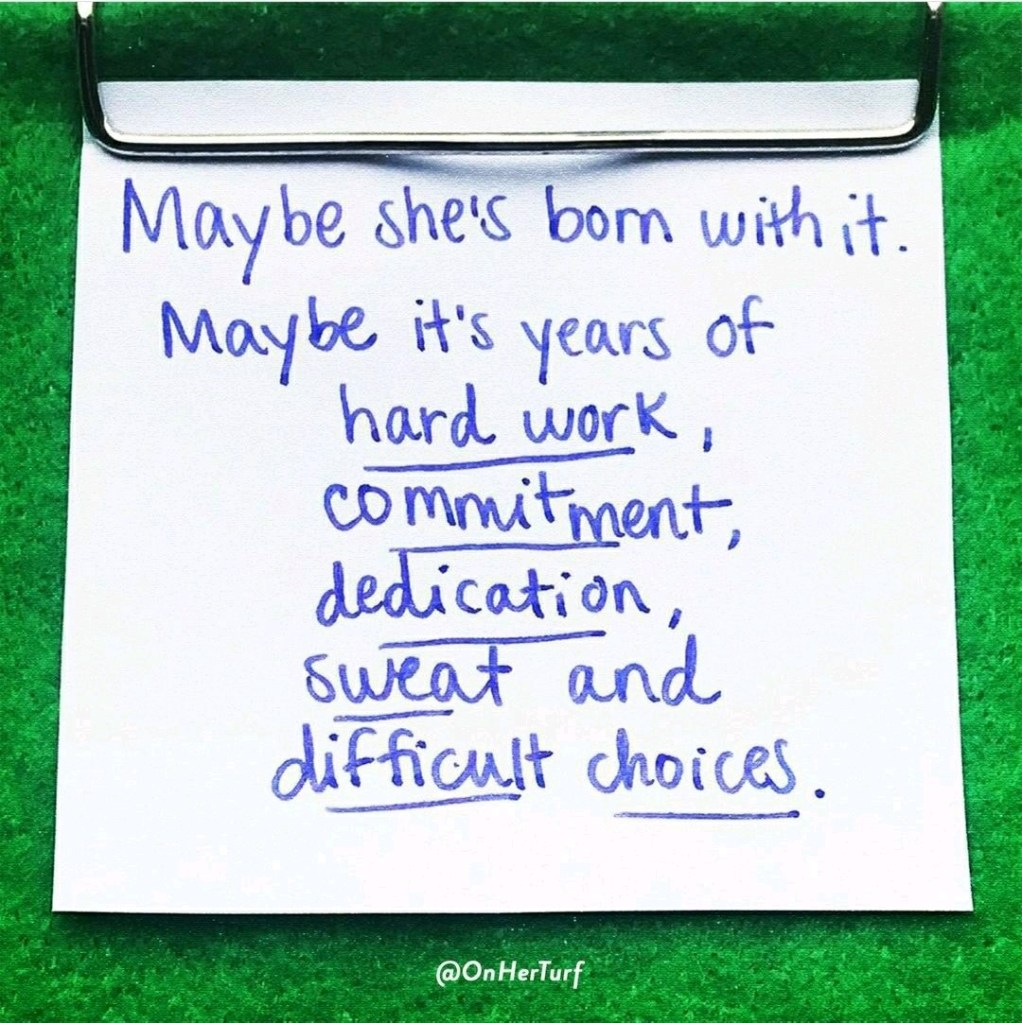 Maybe she's born with it.
Maybe it's years of
hard work,
commitment,
dedication,
sweat and
difficult choices.
@OnHerTurf